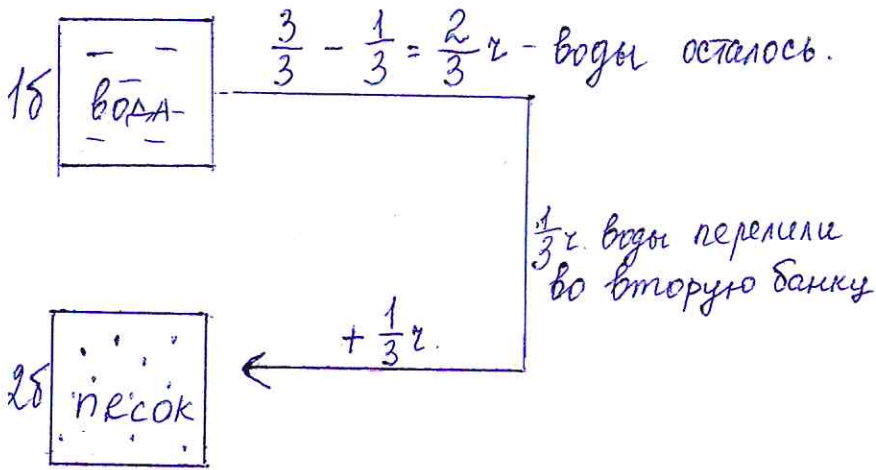 3/3 - 1/3 = 2/3 ч - воды осталось.
1б
вода
1/3 ч. воды перелили
во вторую банку
+ 1/3 ч.
2б
песок